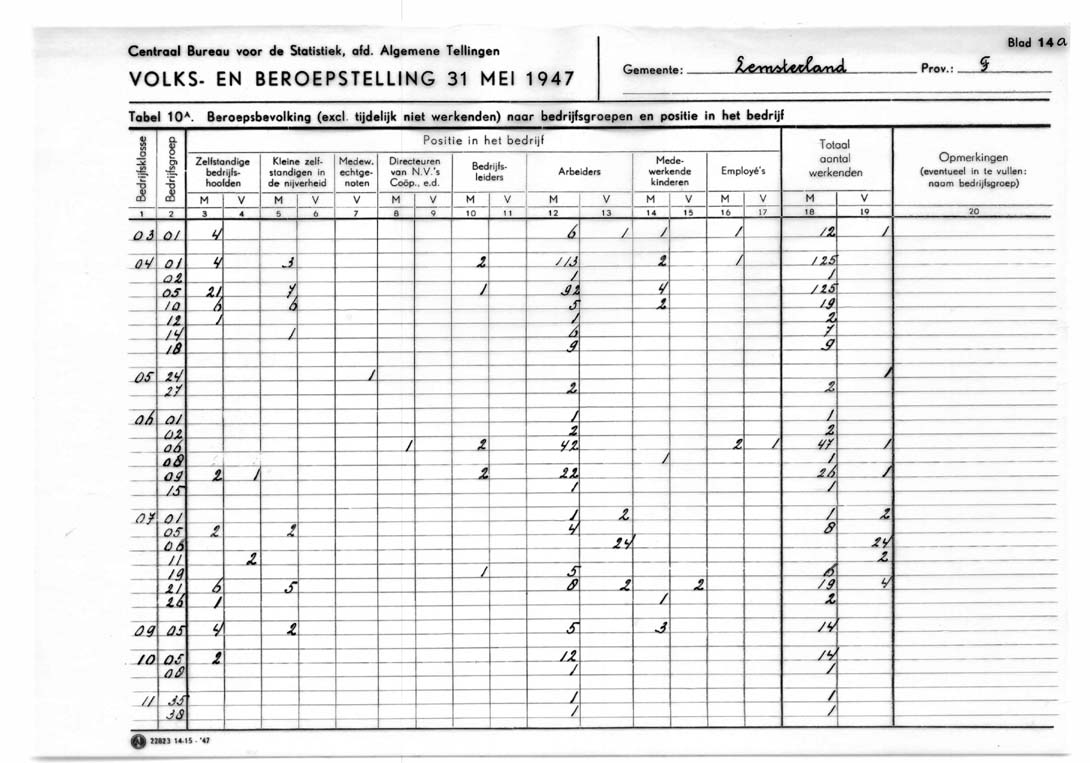 Centraal Bureau voor de Statistiek, afd. Algemene Tellingen
VOLKS- EN BEROEPSTELLING 31 MEI 1947
Gemeente: Lemsterland
Prov.: F
Blad 14a
Tabel 10A. Beroepsbevolking (excl. tijdelijk niet werkenden) naar bedrijfsgroepen en positie in het bedrijf
Bedrijfsklasse Bedrijfsgroep Positie in het bedrijf Totaal aantal werkenden Opmerkingen (eventueel in te vullen: naam bedrijfsgroep)
Zelfstandige bedrijfshoofden Kleine zelfstandigen in de nijverheid Medew. echtgenoten Directeuren van N.V.'s Coöp., e.d. Bedrijfsleiders Arbeiders Medewerkende kinderen Employé's
M V M V V M V M V M V M V M V M V
1 2 3 4 5 6 7 8 9 10 11 12 13 14 15 16 17 18 19 20
03 01 4 6 1 1 1 12 1
04 01 4 3 2 113 2 1 125
02 1 1
05 21 7 1 92 4 125
10 6 6 5 2 19
12 1 1 2
14 1 6 7
18 9 9
05 24 1 1
27 2 2
06 01 1 1
02 2 2
06 1 2 42 2 1 47 1
08 1 1
09 2 1 2 22 26 1
15 1 1
07 01 1 2 1 2
05 2 2 4 8
06 24 24
11 2 2
19 1 5 6
21 6 5 8 2 2 19 4
26 1 1 2
09 05 4 2 5 3 14
10 05 2 12 14
08 1 1
11 35 1 1
38 1 1
22823 14-15 - '47